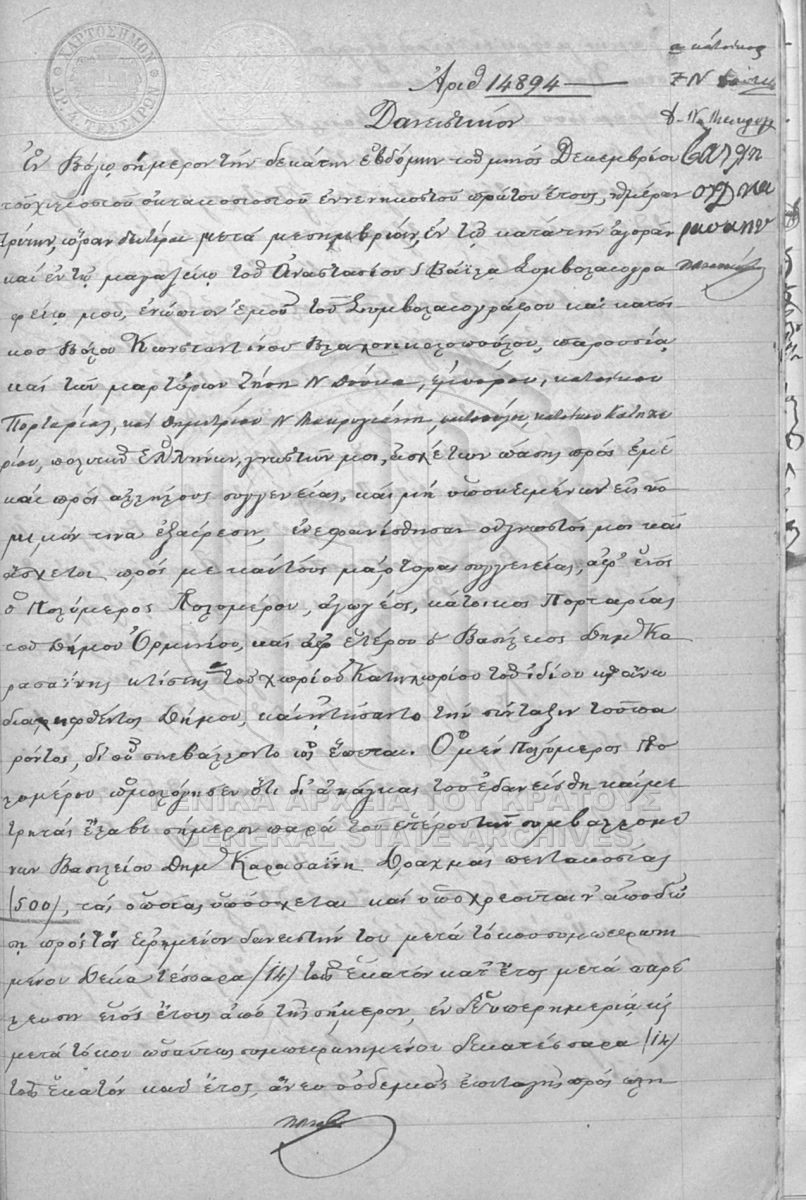 ΧΑΡΤΟΣΗΜΟΝ
ΔΡ. 4. ΤΕΣΣΑΡΩΝ
Ἀριθ 14894
Δανειστικόν
Ἐν Βόλῳ σήμερον τήν δεκάτην ἑβδόμην τοῦ μηνός Δεκεμβρίου
τοῦ χιλιοστοῦ ὀκτακοσιοστοῦ ἐννενηκοστοῦ πρώτου ἔτους, ἡμέραν
Τρίτην, ὥραν δευτέραν μετά μεσημβρίαν, ἐν τῷ κατά τήν ἀγοράν
καί ἐν τῷ μαγαζείῳ τοῦ Ἀναστασίου Βαΐλα Συμβολαιογρα
φείῳ μου, ἐνώπιον ἐμοῦ τοῦ Συμβολαιογράφου καί κατοί
κου Βόλου Κωνσταντίνου Βλαχονικολοπούλου, παρουσίᾳ
καί τῶν μαρτύρων Ν Δούκα, ἐμπόρου, κατοίκου
Πορταριᾶς, καί Δημητρίου Ν Μαυρογιάννη, κατοίκου Κατηχω
ρίου, πολιτῶν Ἑλλήνων, γνωστῶν μοι, ἀσχέτων πάσης πρός ἐμέ
καί πρός ἀλλήλους συγγενείας, καί μή ὑποκειμένων εἰς νό
μιμόν τινα ἐξαίρεσιν, ἐνεφανίσθησαν οἱ γνωστοί μοι καί
ἄσχετοι πρός με καί τούς μάρτυρας συγγενείας, ἀφ' ἑνός
ὁ Πολύμερος Πολυμέρου, ἀγωγεύς, κάτοικος Πορταριᾶς
τοῦ Δήμου Ὀρμινίου, καί ἀφ' ἑτέρου ὁ Βασίλειος Δημ Κα
ρασαΐνης κτίστης τοῦ χωρίου Κατηχωρίου τοῦ ἰδίου ὡς ἄνω
διαληφθέντος Δήμου, καί ᾐτήσαντο τήν σύνταξιν τοῦ πα
ρόντος, δι' οὗ συνεβάλλοντο ὡς ἕπεται. Ὁ μέν Πολύμερος Πο
λυμέρου ὡμολόγησεν ὅτι δι' ἀνάγκας του ἐδανείσθη καί με
τρητάς ἔλαβε σήμερον παρά τοῦ ἑτέρου τῶν συμβαλλομέ
νων Βασιλείου Δημ Καρασαΐνη δραχμάς πεντακοσίας
(500), τάς ὁποίας ὑπόσχεται καί ὑποχρεοῦται ν' ἀποδώ
σῃ πρός τόν εἰρημένον δανειστήν του μετά τόκου συμπεφωνη
μένου δέκα τέσσαρα (14) τοῖς ἑκατόν κατ' ἔτος μετά παρέ
λευσιν ἑνός ἔτους ἀπό τῆς σήμερον, ἐν δέ ὑπερημερίᾳ καί
μετά τόκου ὡσαύτως συμπεφωνημένου δεκατέσσαρα (14)
τοῖς ἑκατόν κατ' ἔτος, ἄνευ οὐδεμιᾶς ἐπιταγῆς πρός πλη
ΓΕΝΙΚΑ ΑΡΧΕΙΑ ΤΟΥ ΚΡΑΤΟΥΣ
GENERAL STATE ARCHIVES